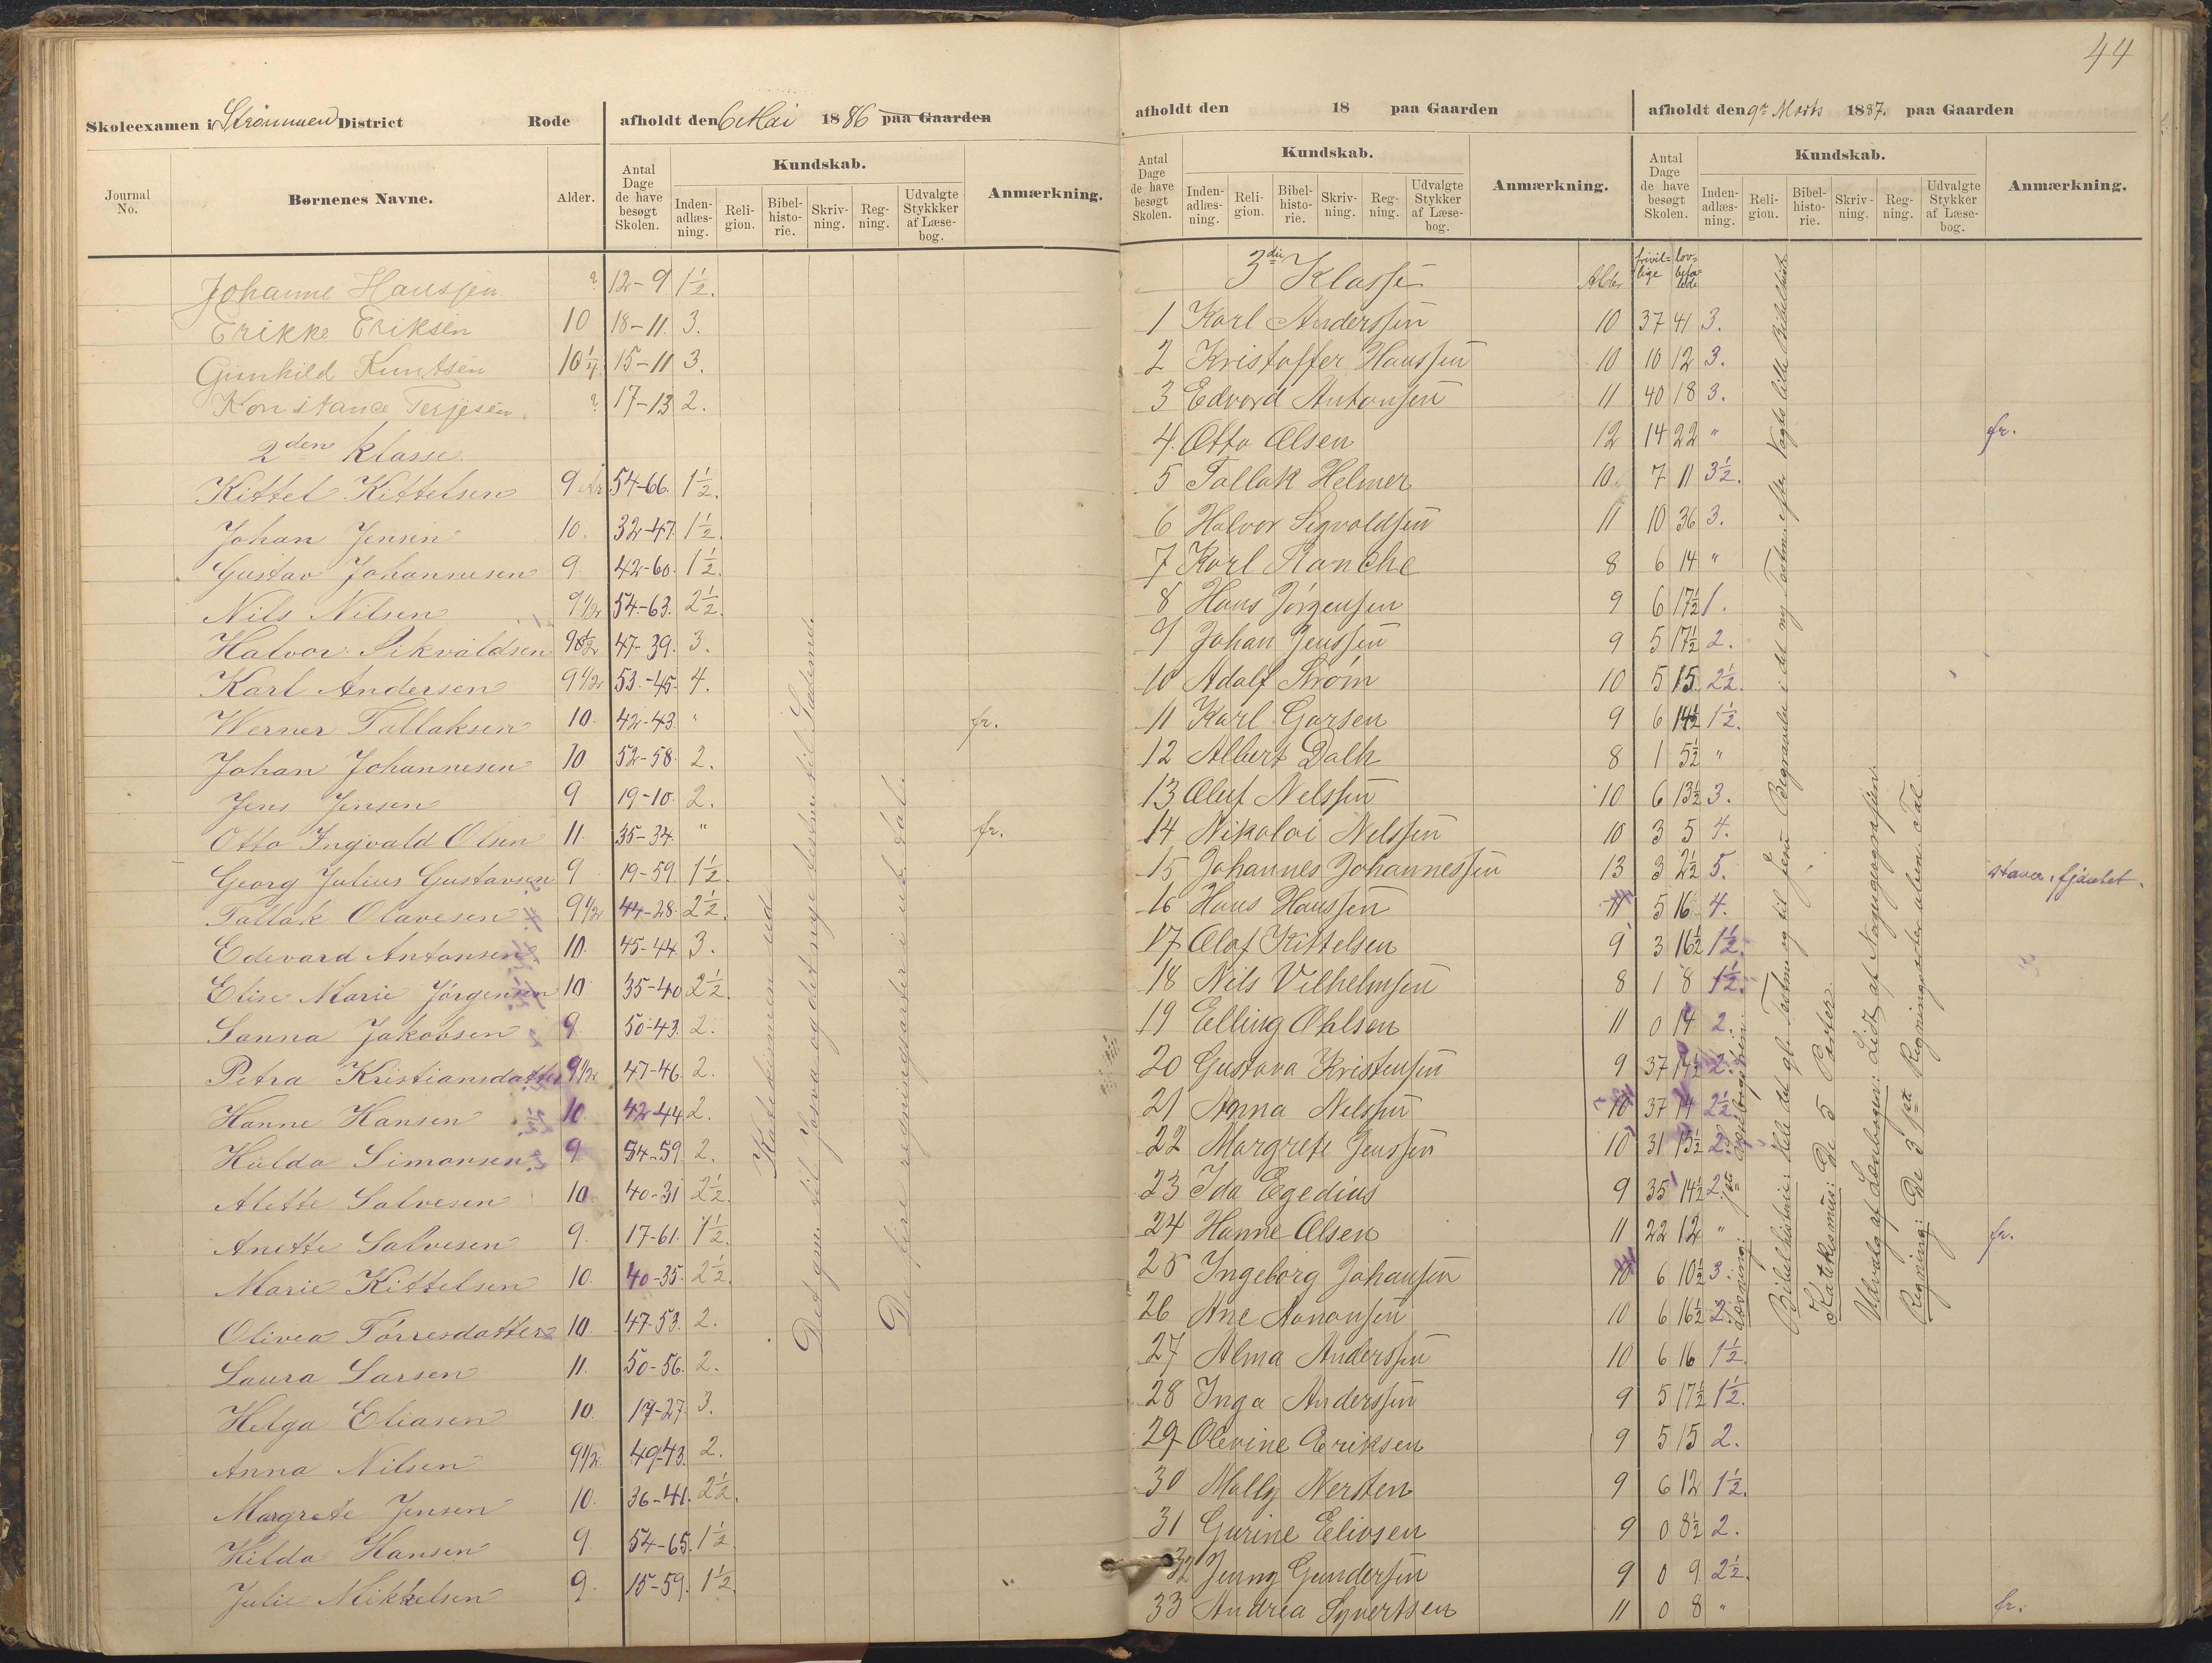 44
Skoleexamen i Strømmen District Rode afholdt den 6 Mai 1886 paa Gaarden
Journal No. Børnenes Navne. Alder. Antal Dage de have besøgt Skolen. Kundskab. Anmærkning.
Inden-adlæs-ning. Reli-gion. Bibel-histo-rie. Skriv-ning. Reg-ning. Udvalgte Stykkker af Læse-bog.
Johanne Hanssen ? 12-9 1½.
Erikke Eriksen 10 18-11. 3.
Gunhild Knutsen 10¼ 15-11 3.
Konstance Terjesen. ? 17-13 2.
2den Klasse.
Kittel Kittelsen 9 Ar 54-66. 1½.
Johan Jensen 10. 32-47. 1½.
Gustav Johannesen 9 42-60. 1½.
Nils Nilsen 9½ 54-63. 2½.
Halvor Sikvaldsen 9½ 47-39. 3.
Karl Andersen 9½ 53-45. 4.
Werner Tallaksen 10. 42-43. " fr.
Johan Johannesen 10 52-58. 2.
Jens Jensen 9 19-10. 2.
Otto Ingvald Olsen 11. 35-34. " fr.
Georg Julius Gustavsen 9 19-59. 1½.
Tallak Olavesen 9½ 44-28. 2½.
Edevard Antonsen 10. 45-44. 3.
Elise Marie Jørgensen 10 35-40 2½.
Sanna Jakobsen 9. 50-43. 2.
Petra Kristiansdatter 9½ 47-46. 2.
Hanne Hansen 10. 42-44 2.
Hulda Simonsen 9 54-59. 2.
Alette Salvesen 10. 40-31 2½.
Anette Salvesen 9. 17-61. 1½.
Marie Kittelsen 10. 40-35. 2½.
Olivea Torresdatter 10. 47-53. 2.
Laura Larsen 11. 50-56. 2.
Helga Eliasen 10. 17-27. 3.
Anna Nilsen 9½ 49-43. 2.
Margrete Jensen 10. 36-41. 2½.
Hilda Hansen 9. 54-65. 1½.
Julie Mikkelsen 9. 15-59. 1½.
Katekismen ud
Det gm. til Josva og det nye testm. til Lædemd.
De fire regningsarter i ub. tal.
afholdt den 18 paa Gaarden
Antal Dage de have besøgt Skolen. Kundskab. Anmærkning.
Inden-adlæs-ning. Reli-gion. Bibel-histo-rie. Skriv-ning. Reg-ning. Udvalgte Stykker af Læse-bog.
afholdt den 9de Marts 1887. paa Gaarden
Antal Dage de have besøgt Skolen. Kundskab. Anmærkning.
Inden-adlæs-ning. Reli-gion. Bibel-histo-rie. Skriv-ning. Reg-ning. Udvalgte Stykker af Læse-bog.
3die Klasse Alder frivil-lige lov-befa-lede
1 Karl Anderssen 10 37 41 3.
2 Kristoffer Hanssen 10 10 12 3.
3 Edvard Antonsen 11 40 18 3.
4. Otto Olsen 12 14 22 " fr.
5 Tallak Helmer 10. 7 11 3½.
6 Halvor Sigvaldsen 11 10 36 3.
7 Karl Ranche 8 6 14 "
8 Hans Jørgensen 9 6 17½ 1.
9 Johan Jenssen 9 5 17½ 2.
10 Adolf Strøm 10 5 15 2½.
11 Karl Garsen 9 6 14½ 1½.
12 Albert Dalh 8 1 5½ "
13 Oluf Nelssen 10 6 13½ 3.
14 Nikolai Nelssen 10 3 5 4.
15 Johannes Johannessen 13 3 2½ 5.
16 Hans Hanssen 11 5 16 4.
17 Olaf Kittelsen 9 3 16½ 1½.
18 Nils Vilhelmsen 8 1 8 1½.
19 Elling Ohlsen 11 0 14 2.
20 Gustava Kristensen 9 37 14½ 2.
21 Anna Nelssen 10 37 14 2½.
22 Margrete Jenssen 10 31 15½ 2.
23 Ida Egedius 9 35 14½ 2.
24 Hanne Olsen 11 22 12 " fr.
25 Ingeborg Johansen 10 6 10½ 3.
26 Ane Aanonsen 10 6 16½ 2.
27 Alma Anderssen 10 6 16 1½.
28 Inga Anderssen 9 5 17½ 1½.
29 Olevine Eriksen 9 5 15 2.
30 Mally Nersten 9 6 12 1½.
31 Gurine Eliosen 9 0 8½ 2.
32 Jenny Gundersen 9 0 9 2½.
33 Andrea Syvertsen 11 0 8 " fr.
Bibelhistorie: Hele det gl. Testme og til Jesu Begravelse i det ny Testme efter Vogts lille Bibelhist
Katekismus: De 5 Parter
Udvalg af Læsebogen: Lidt af Norgesgeografien.
Regning: De 3 1ste Regningsarter uben. Tal.